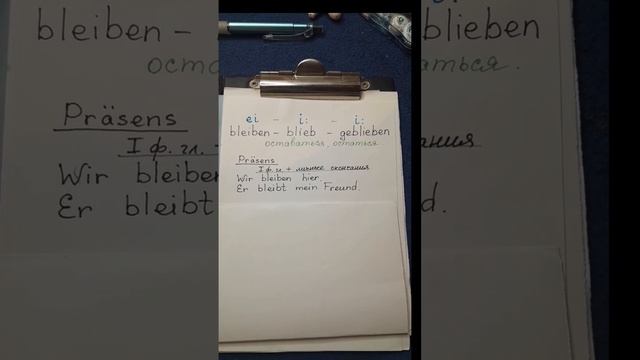 ei - i: - i:
bleiben - blieb - geblieben
оставаться, остаться.
Präsens
I ф. гл. + личные окончания
Wir bleiben hier.
Er bleibt mein Freund.